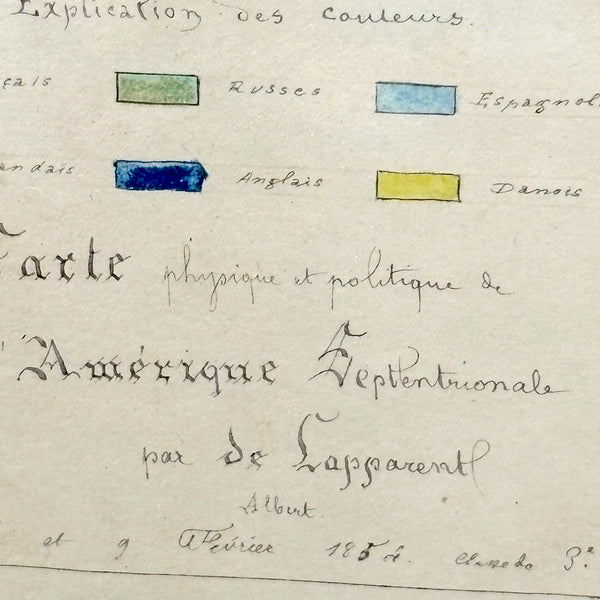 Explication des couleurs.
çais Russes Espagnol
andais Anglais Danois
Carte physique et politique de
l'Amérique Septentrionale
par de Lapparent
Albert.
et 9 Février classe de 3e